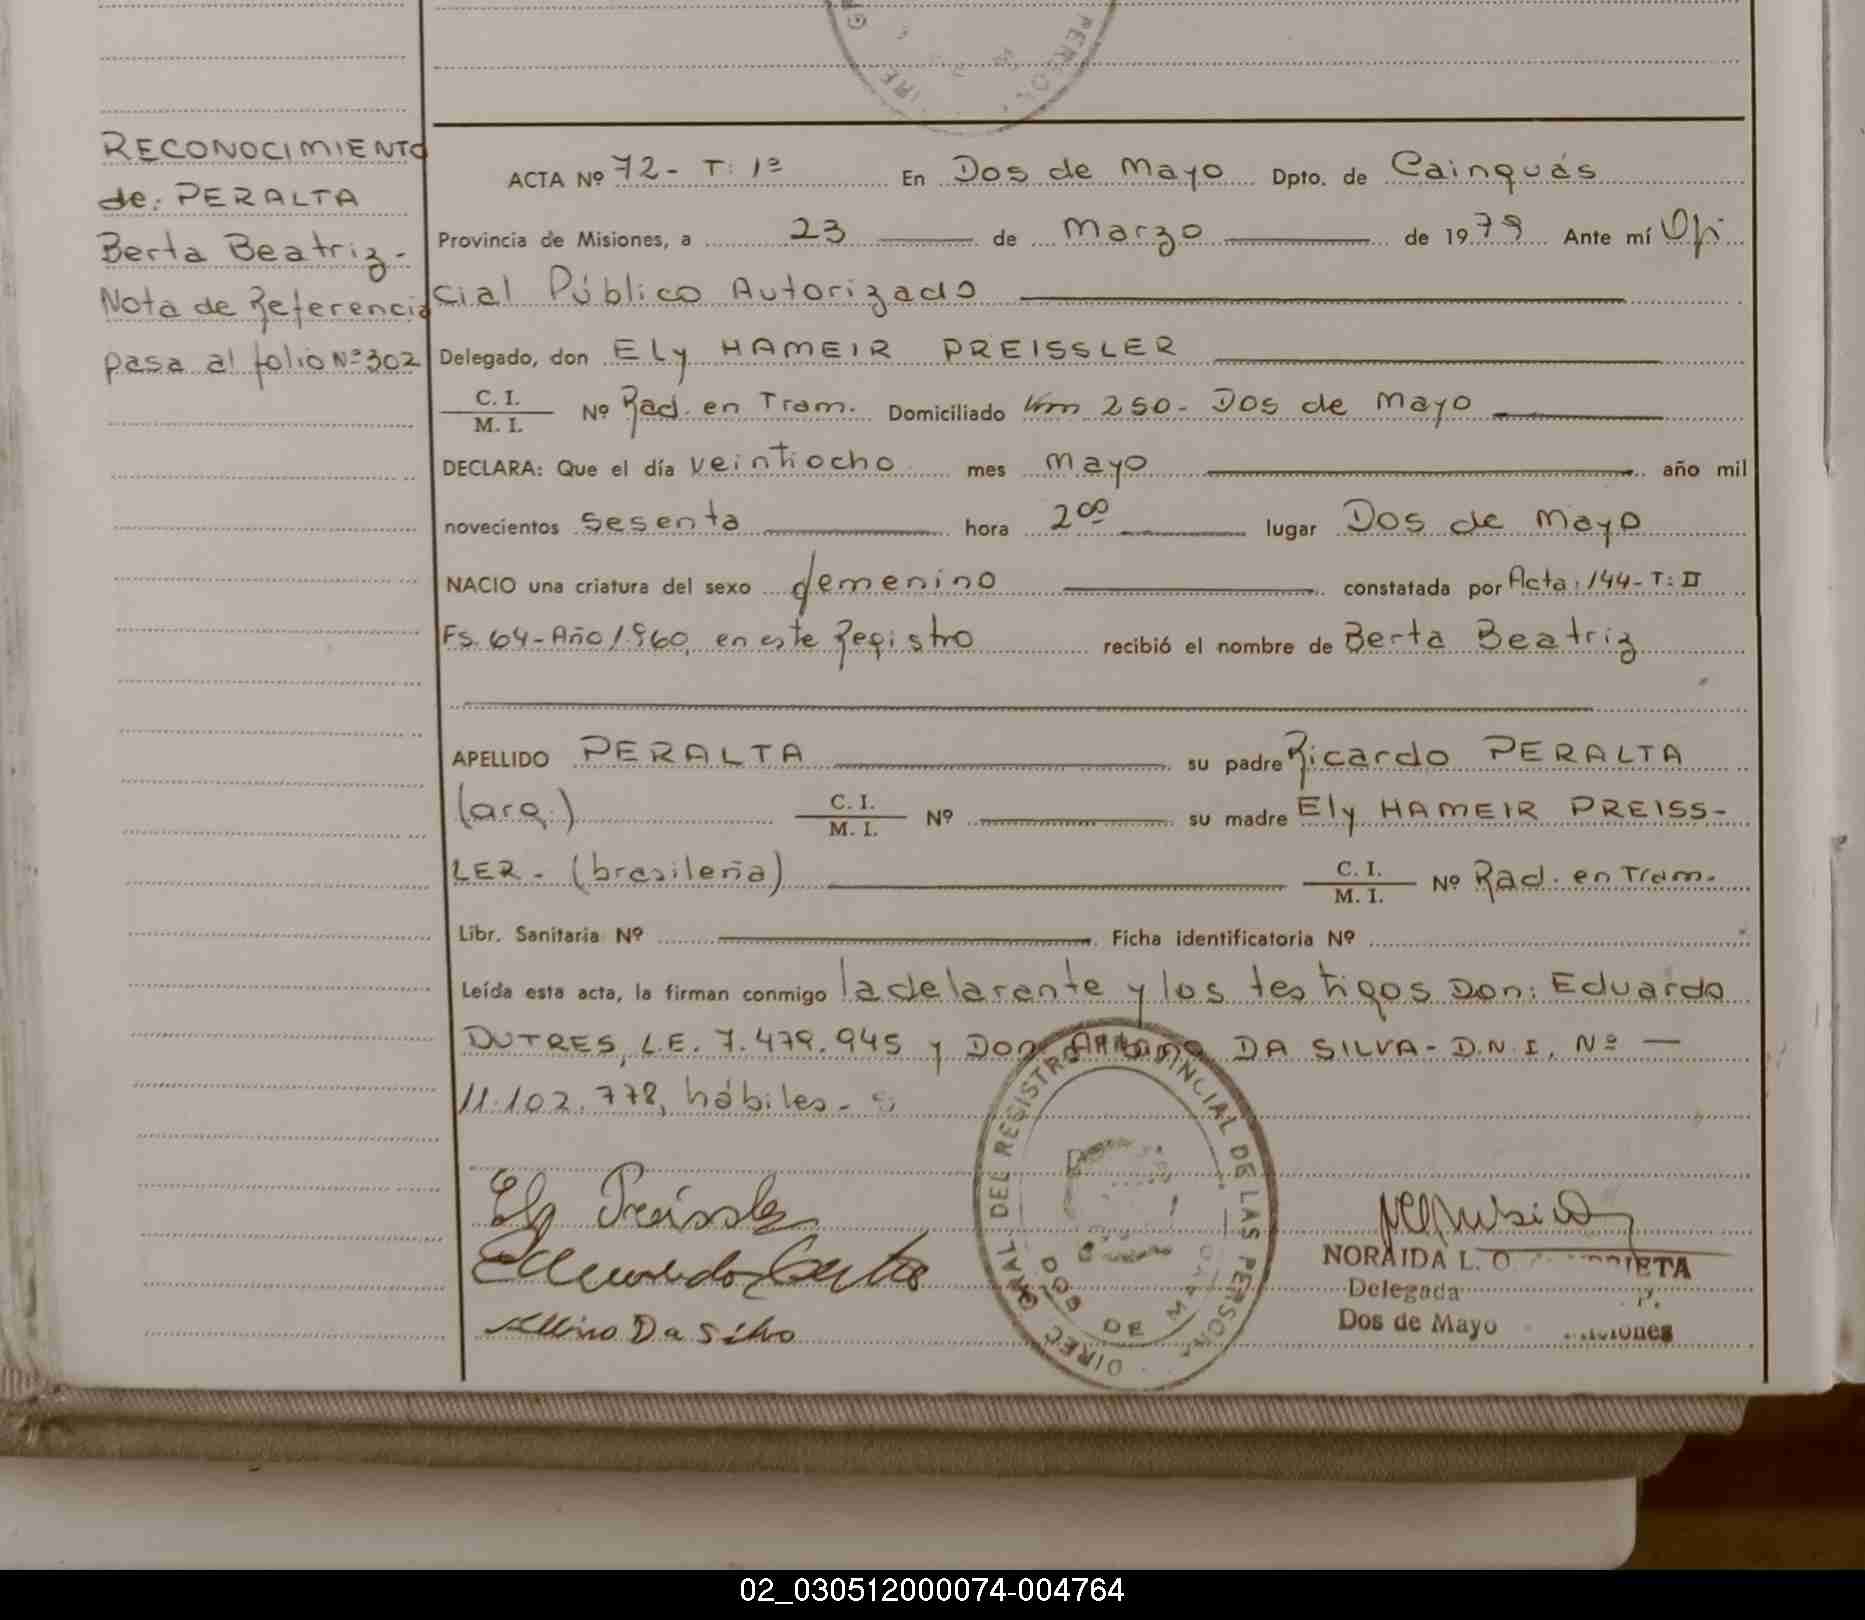 RECONOCIMIENTO
de: PERALTA
Berta Beatriz.-
Nota de Referencia
pasa al folio Nº 302
ACTA Nº 72- T: 1º En Dos de Mayo Dpto. de Cainguás
Provincia de Misiones, a 23 de Marzo de 1979 Ante mí Ofi
cial Público Autorizado
Delegado, don Ely HAMEIR PREISSLER
C. I.
M. I.
Nº Rad. en Tram. Domiciliado Km 250- Dos de Mayo
DECLARA: Que el día veintiocho mes Mayo año mil
novecientos sesenta hora 2⁰⁰ lugar Dos de Mayo
NACIO una criatura del sexo femenino constatada por Acta: 144- T: II
Fs. 64- Año 1.960, en este Registro recibió el nombre de Berta Beatriz
APELLIDO PERALTA su padre Ricardo PERALTA
(arg.) C. I. / M. I. Nº su madre Ely HAMEIR PREISS-
LER - (brasileña) C. I. / M. I. Nº Rad. en Tram.
Libr. Sanitaria Nº Ficha identificatoria Nº
Leída esta acta, la firman conmigo la delarante y los testigos Don: Eduardo
DUTRES, L.E. 7.479.945 y Don DA SILVA- D.N.I. Nº —
11.102.778, hábiles.-
DIREC. GRAL. DEL REGISTRO PROVINCIAL DE LAS PERSON.
DOS DE MAYO
Ely Preissler
Eduardo
Albino Da Silva
NORAIDA L. O
Delegada
Dos de Mayo Misiones
02_030512000074-004764